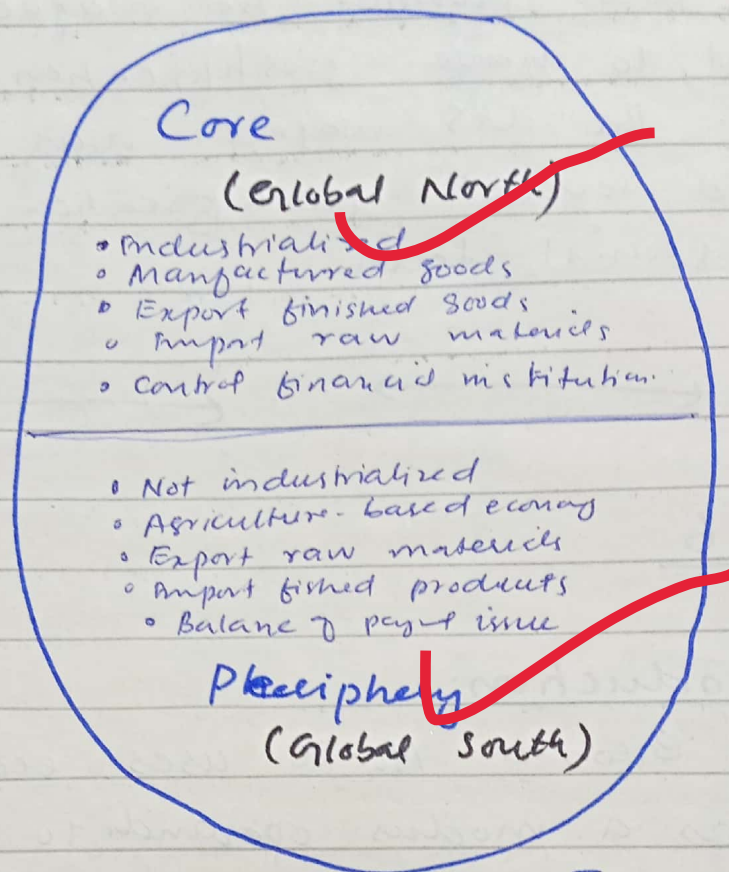 Core
(Global North)
• Industrialized
• Manfactured goods
• Export finished goods
• Import raw materials
• Control financial institution.
• Not industrialized
• Agriculture-based economy
• Export raw materials
• Import fished products
• Balance of paymt issue
Periphery
(Global South)